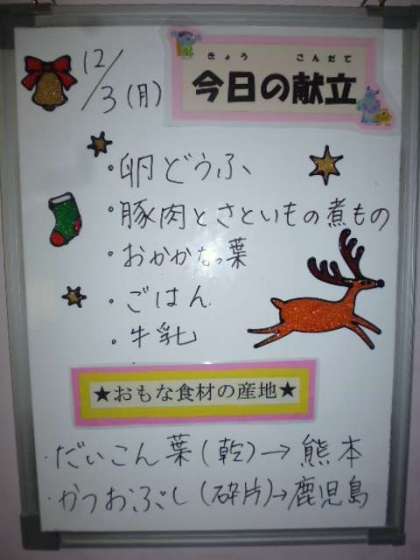 12/3(月)
きょう こんだて
今日の献立
・卵どうふ
・豚肉とさといもの煮もの
・おかかなっ葉
・ごはん
・牛乳
★おもな食材の産地★
・だいこん葉(乾)→熊本
・かつおぶし(砕片)→鹿児島